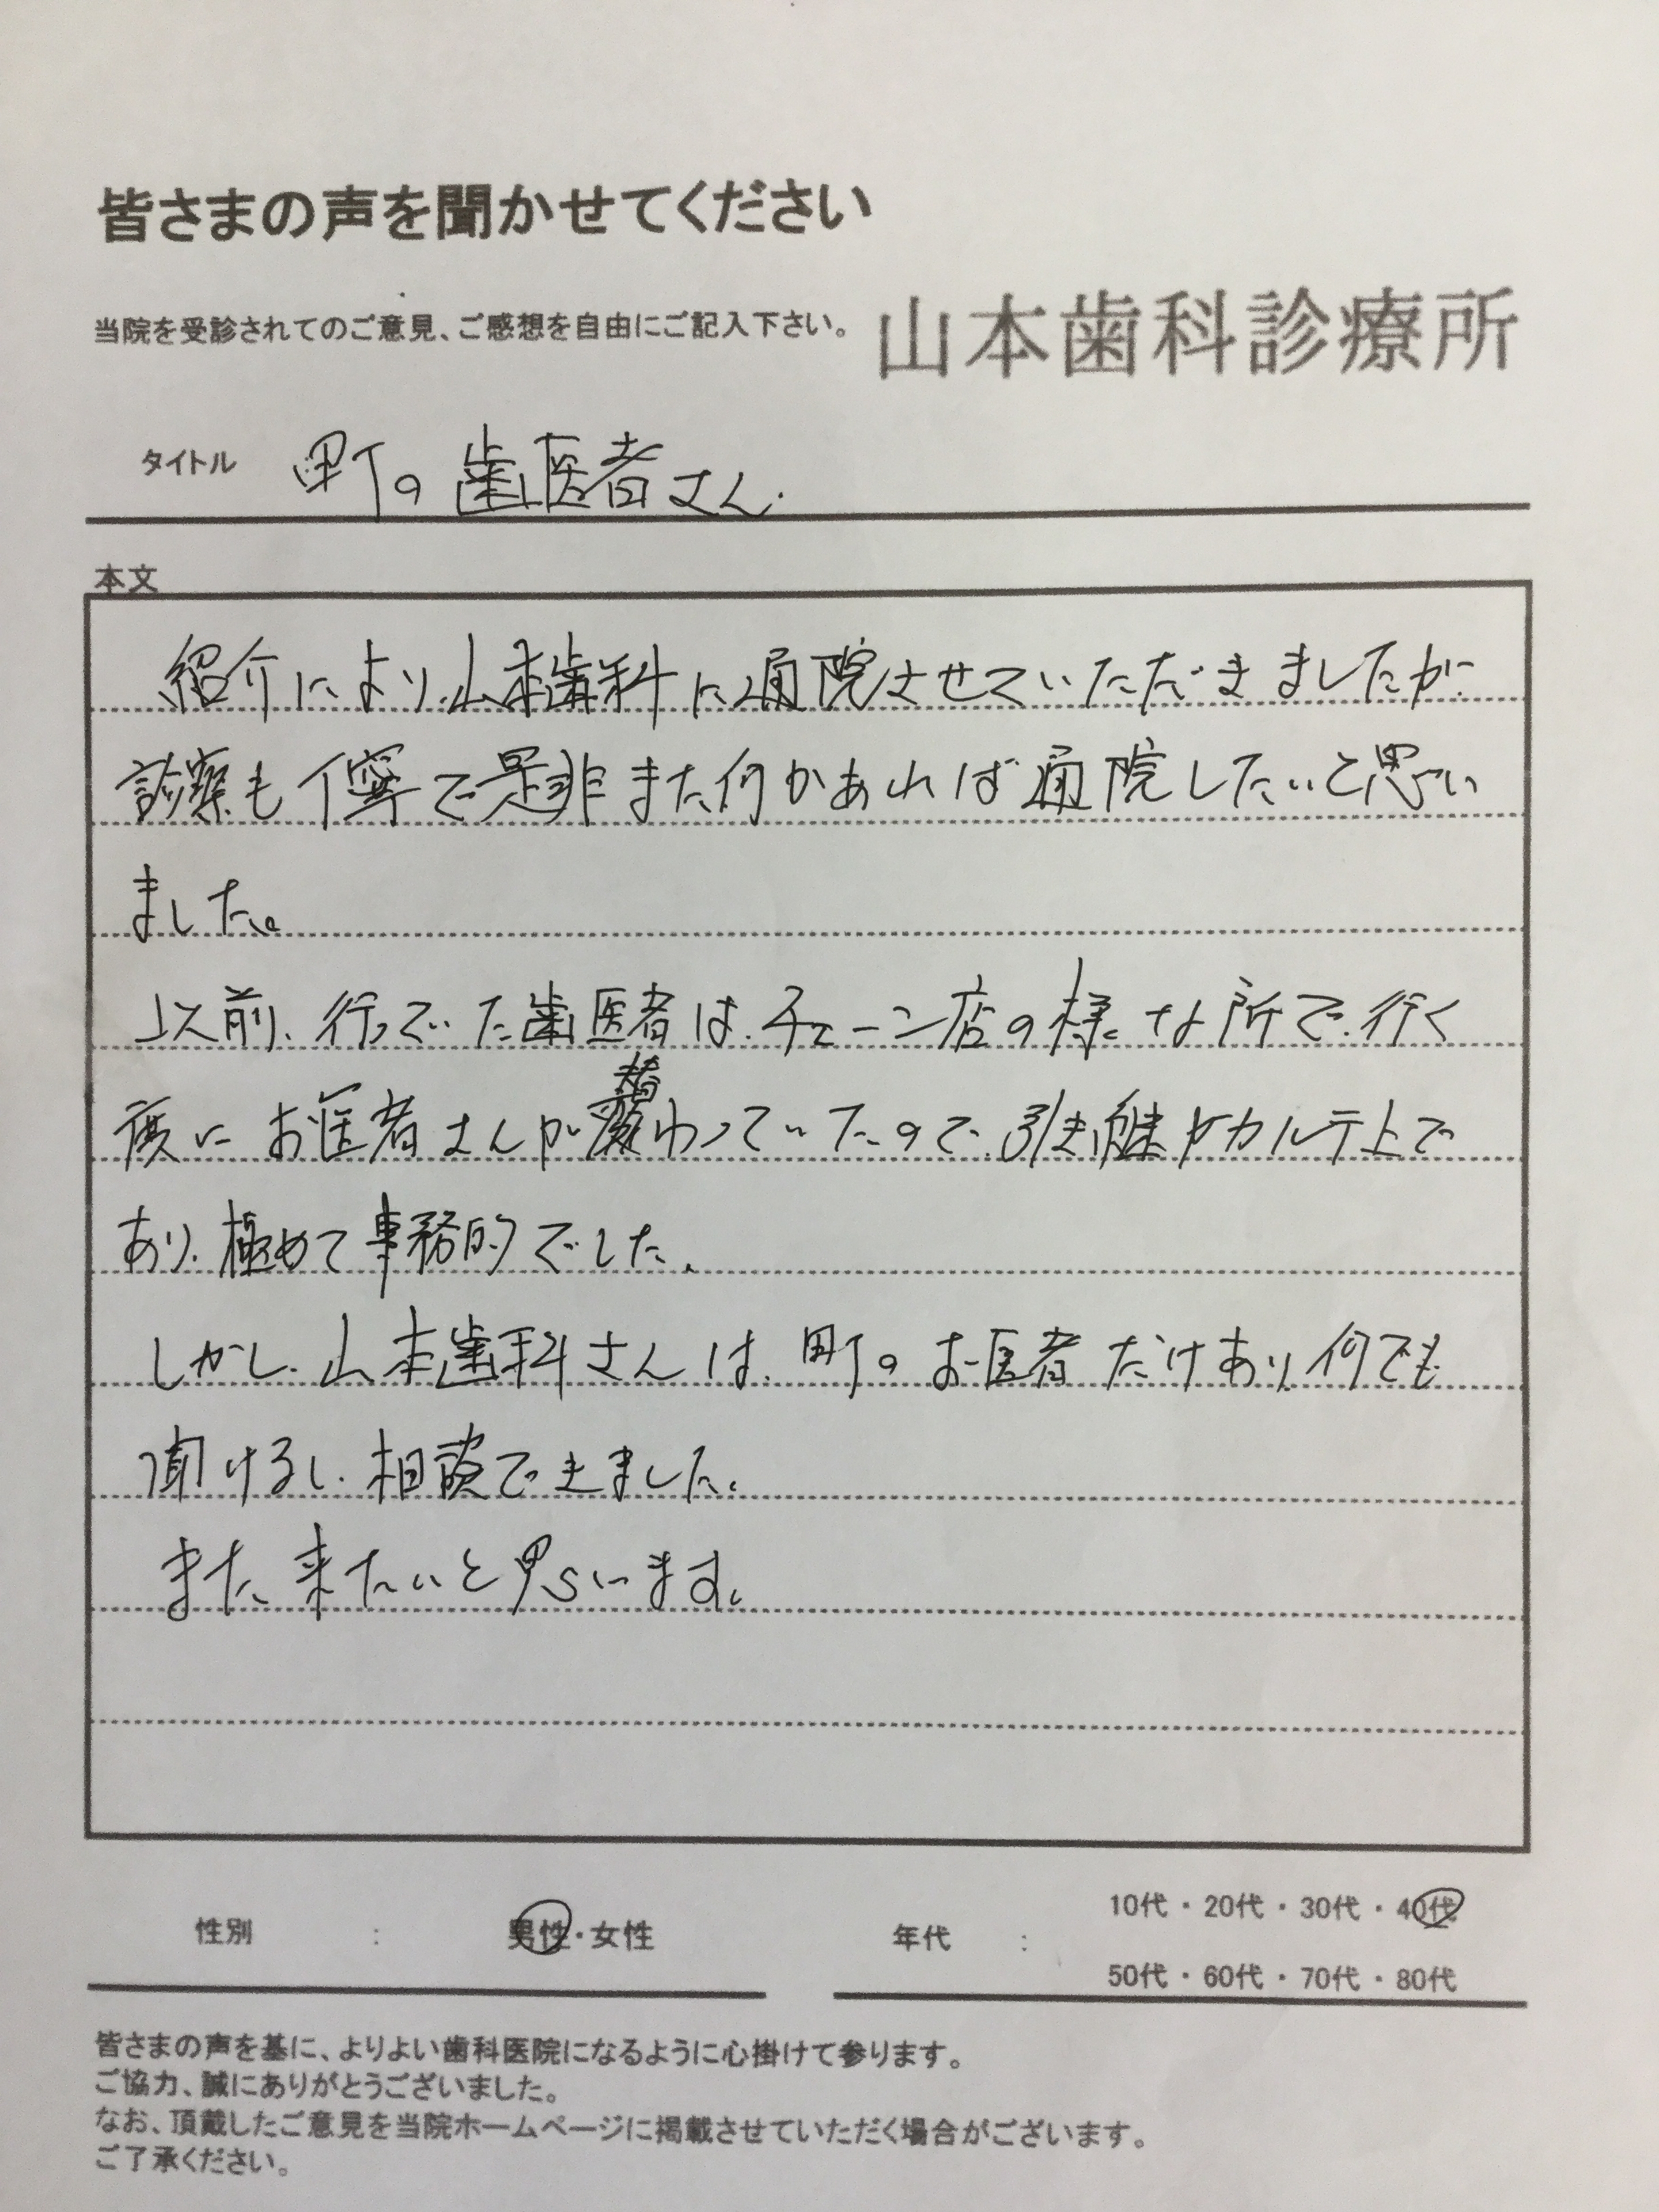 皆さまの声を聞かせてください
当院を受診されてのご意見、ご感想を自由にご記入下さい。
山本歯科診療所
タイトル 町の歯医者さん.
本文
紹介により、山本歯科に通院させていただきましたが
診察も丁寧で是非また何かあれば通院したいと思い
ました。
以前、行っていた歯医者は、チェーン店の様な所で、行く
度にお医者さんが替わっていたので、引き継ぎカルテ上で
あり、極めて事務的でした。
しかし、山本歯科さんは、町のお医者だけあり、何でも
聞けるし、相談できました。
また、来たいと思います。
性別 : 男性・女性
年代 : 10代・20代・30代・40代
50代・60代・70代・80代
皆さまの声を基に、よりよい歯科医院になるように心掛けて参ります。
ご協力、誠にありがとうございました。
なお、頂戴したご意見を当院ホームページに掲載させていただく場合がございます。
ご了承ください。